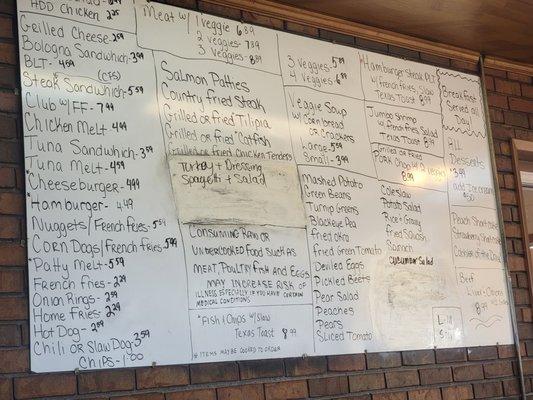 ADD Chicken 2.25
Grilled Cheese - 2.89
Bologna Sandwich - 3.99
BLT - 4.69
(CFS)
Steak Sandwich - 5.59
Club w/FF - 7.99
Chicken Melt - 4.99
Tuna Sandwich - 3.99
Tuna Melt - 4.59
*Cheeseburger - 4.99
*Hamburger - 4.49
Nuggets/French Fries - 5.54
Corn Dogs/French fries 5.59
*Patty Melt - 5.59
French Fries - 2.29
Onion Rings - 2.99
Home Fries - 2.99
Hot Dog - 2.09
Chili or Slaw Dog - 3.59
Chips - 1.00
Meat w/ 1 Veggie 6.89
2 Veggies - 7.89
3 Veggies - 8.89
Salmon Patties
Country Fried Steak
Grilled or Fried Tilipia
Grilled or Fried Catfish
Grilled or Fried Chicken Tenders
Turkey + Dressing
Spagetti + Salad
Consuming Raw or
Undercooked Food such as
Meat, Poultry Fish and Eggs
may increase risk of
illness especially if you have certain
medical conditions
*Fish & Chips w/ Slaw
Texas Toast 8.99
* Items may be cooked to order
3 Veggies - 5.89
4 Veggies - 6.99
Veggie Soup
w/ Cornbread
or Crackers
Large - 5.59
Small - 3.99
Mashed Potato
Green Beans
Turnip Greens
Blackeye Pea
Fried Okra
Fried Green Tomato
Deviled Eggs
Pickled Beets
Pear Salad
Peaches
Pears
Sliced Tomato
*Hamburger Steak Plt
w/ french fries, Slaw
Texas Toast 8.99
Jumbo Shrimp
w/ french fries, Salad
Texas Toast
Grilled or Fried
Pork Chop w/ 2 Veg
8.99
Coleslaw
Potato Salad
Rice + Gravy
Fried Squash
Spinach
Cucumber Salad
Breakfast
Served All
Day
All
Desserts
3.99
add Ice Cream
Peach Shortcake
Strawberry Shortcake
Beef
Liver + Onions
8.99